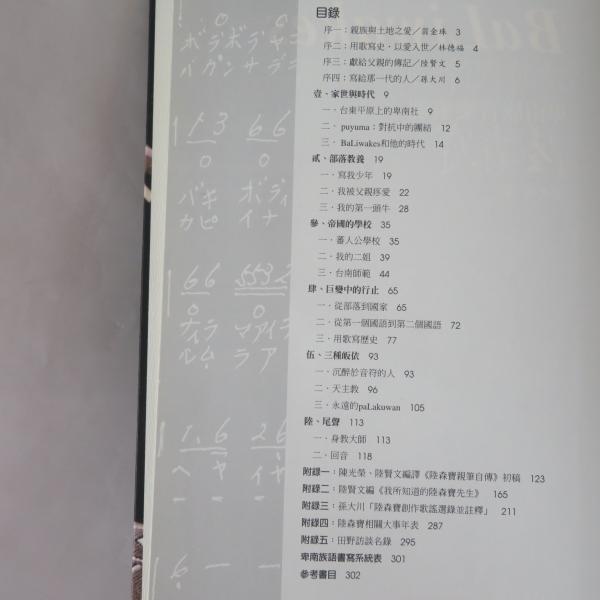 目錄
序一：親族與土地之愛／翁金珠 3
序二：用歌寫史，以愛入世／林德福 4
序三：獻給父親的傳記／陸賢文 5
序四：寫給那一代的人／孫大川 6
壹、家世與時代 9
一．台東平原上的卑南社 9
二．puyuma：對抗中的團結 12
三．BaLiwakes和他的時代 14
貳、部落教養 19
一．寫我少年 19
二．我被父親疼愛 22
三．我的第一頭牛 28
參、帝國的學校 35
一．蕃人公學校 35
二．我的二姐 39
三．台南師範 44
肆、巨變中的行止 65
一．從部落到國家 65
二．從第一個國語到第二個國語 72
三．用歌寫歷史 77
伍、三種皈依 93
一．沉醉於音符的人 93
二．天主教 96
三．永遠的paLakuwan 105
陸、尾聲 113
一．身教大師 113
二．回音 118
附錄一：陳光榮、陸賢文編譯《陸森寶親筆自傳》初稿 123
附錄二：陸賢文編《我所知道的陸森寶先生》 165
附錄三：孫大川「陸森寶創作歌謠選錄並註釋」 211
附錄四：陸森寶相關大事年表 287
附錄五：田野訪談名錄 295
卑南族語書寫系統表 301
參考書目 302
ボラボラヤ
バガンサラニ
1 3 6 6
0 0
バキ ボディ
カピ イナ
6 6
ルム ラア
1. 6 2 6
ヘ ヤ イヤ